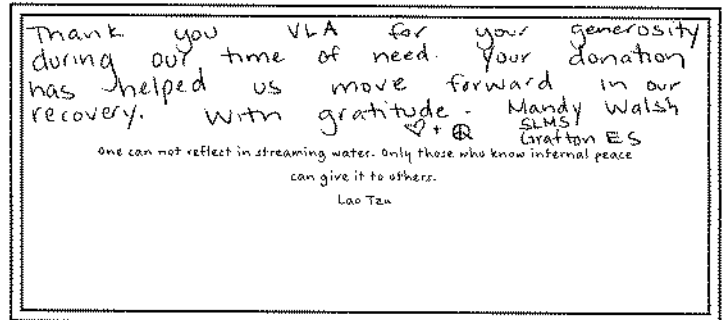 Thank you VLA for your generosity
during our time of need. Your donation
has helped us move forward in our
recovery. With gratitude - Mandy Walsh
SLMS
Grafton ES
One can not reflect in streaming water. Only those who know internal peace
can give it to others.
Lao Tzu